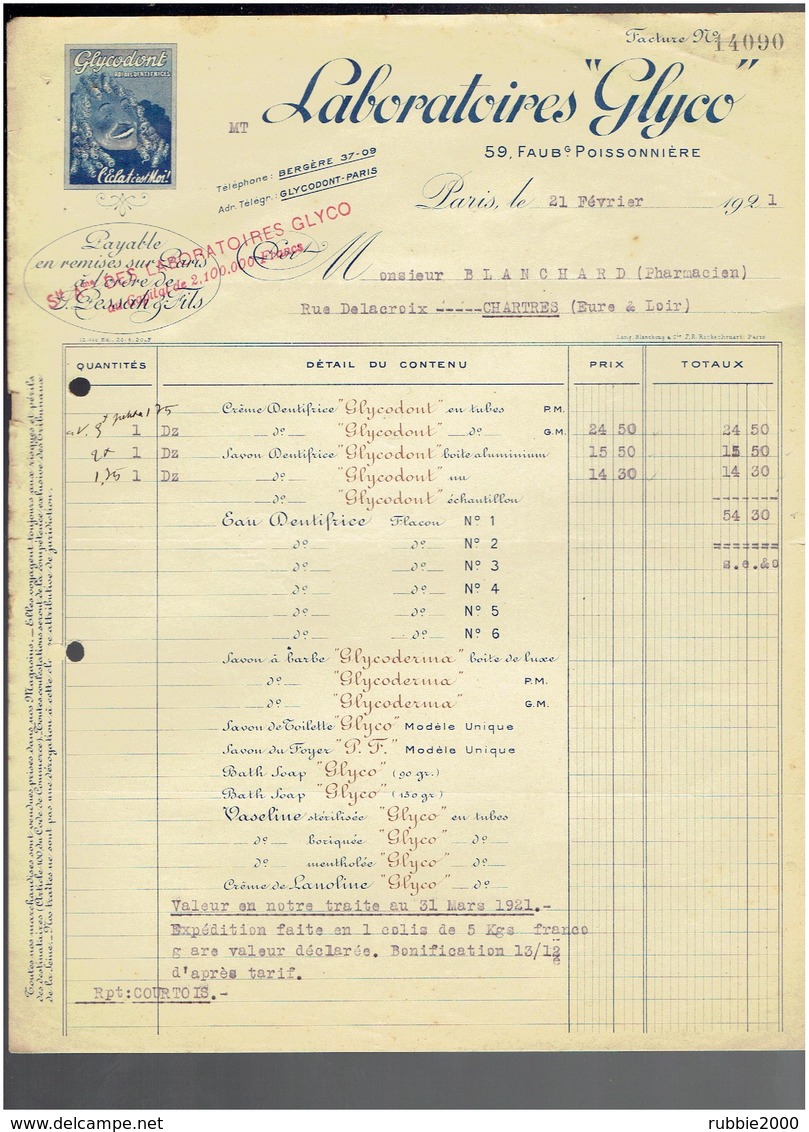 Facture No 14090
Glycodont
ROI DES DENTIFRICES
L'Eclat c'est Moi!
MT
Laboratoires "Glyco"
59, FAUBG POISSONNIÈRE
Téléphone: BERGÈRE 37-09
Adr. Télégr.: GLYCODONT-PARIS
Paris, le 21 Février 1921
Payable
en remises sur Paris
à l'ordre de
Pessah & Fils
Sté Ame DES LABORATOIRES GLYCO
au Capital de 2.100.000 Francs
Doit Monsieur BLANCHARD (Pharmacien)
Rue Delacroix -----CHARTRES (Eure & Loir)
QUANTITÉS DÉTAIL DU CONTENU PRIX TOTAUX
Crème Dentifrice "Glycodont" en tubes P.M.
1 Dz do "Glycodont" do G.M. 24 50 24 50
1 Dz Savon Dentifrice "Glycodont" boîte aluminium 15 50 15 50
1,75 1 Dz do "Glycodont" nu 14 30 14 30
do "Glycodont" échantillon -------
Eau Dentifrice Flacon No 1 54 30
do do No 2 =======
do do No 3 s.e.&o
do do No 4
do do No 5
do do No 6
Savon à barbe "Glycoderma" boîte de luxe
do "Glycoderma" P.M.
do "Glycoderma" G.M.
Savon de Toilette "Glyco" Modèle Unique
Savon du Foyer "P.F." Modèle Unique
Bath Soap "Glyco" (90 gr.)
Bath Soap "Glyco" (150 gr)
Vaseline stérilisée "Glyco" en tubes
do boriquée "Glyco" do
do mentholée "Glyco" do
Crème de Lanoline "Glyco" do
Valeur en notre traite au 31 Mars 1921.-
Expédition faite en 1 colis de 5 Kgs franco
g are valeur déclarée. Bonification 13/12e
d'après tarif.
Rpt:COURTOIS.-
Toutes nos marchandises sont vendues prises dans nos Magasins. _ Elles voyagent toujours aux risques et périls
des destinataires (Article 100 du Code de Commerce). Toutes contestations seront de la compétence exclusive des Tribunaux
de la Seine._ Nos traites ne sont pas une dérogation à cette clause attributive de juridiction.
rubbie2000